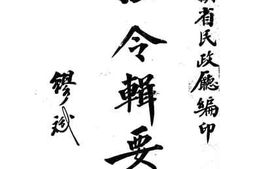 省民政廳編印
令輯要
繆斌